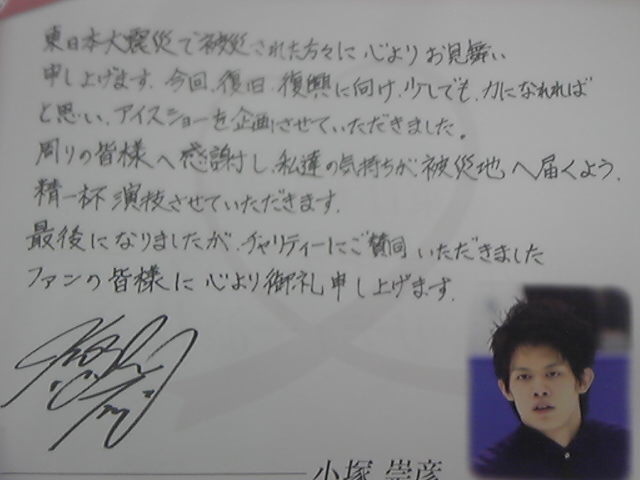 東日本大震災で被災された方々に心よりお見舞い
申し上げます。今回、復旧、復興に向け、少しでも、力になれれば
と思い、アイスショーを企画させていただきました。
周りの皆様へ感謝し、私達の気持ちが被災地へ届くよう、
精一杯演技させていただきます。
最後になりましたが、チャリティーにご賛同いただきました
ファンの皆様に心より御礼申し上げます。
小塚 崇彦